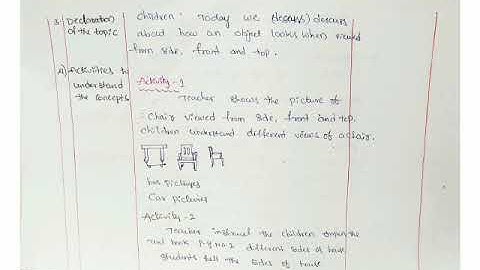 3. Declaration of the topic
children: Today we discuss) discuss
about how an object looks when viewed
from side, front and top.
4) Activities to understand the concepts
Activity-1
Teacher shows the picture of
Chair viewed from side, front and top.
children understand different views of a chair.
bus pictures
Car pictures
Activity-2
Teacher instruct the children
text book P.g.No.2 different sides of
students tell the sides of